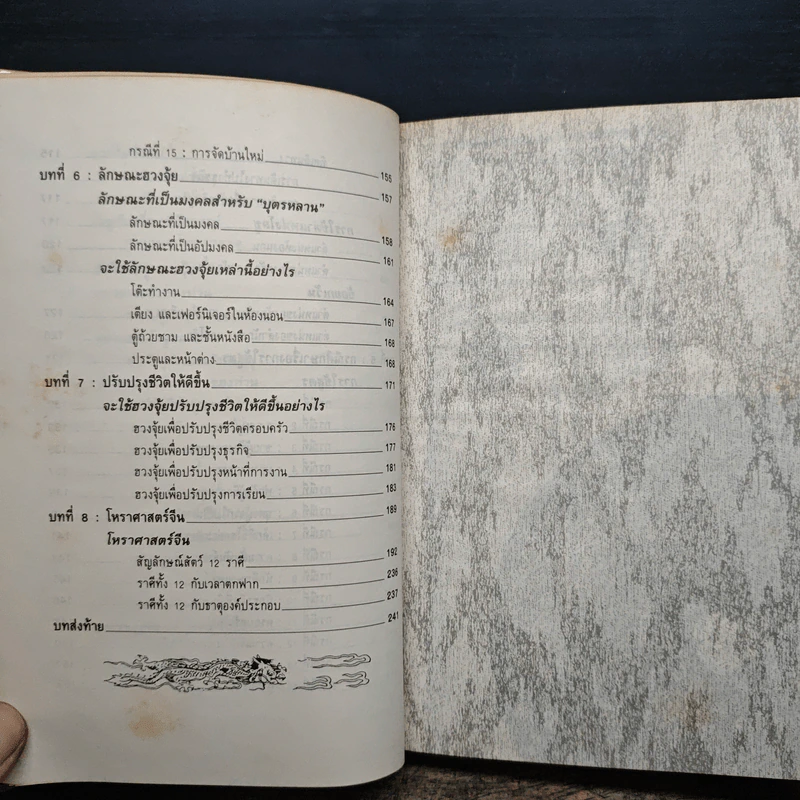 กรณีที่ 15 : การจัดบ้านใหม่ 155
บทที่ 6 : ลักษณะฮวงจุ้ย 157
ลักษณะที่เป็นมงคลสำหรับ "บุตรหลาน"
ลักษณะที่เป็นมงคล 158
ลักษณะที่เป็นอัปมงคล 161
จะใช้ลักษณะฮวงจุ้ยเหล่านี้อย่างไร
โต๊ะทำงาน 164
เตียง และเฟอร์นิเจอร์ในห้องนอน 167
ตู้ถ้วยชาม และชั้นหนังสือ 168
ประตูและหน้าต่าง 168
บทที่ 7 : ปรับปรุงชีวิตให้ดีขึ้น 171
จะใช้ฮวงจุ้ยปรับปรุงชีวิตให้ดีขึ้นอย่างไร
ฮวงจุ้ยเพื่อปรับปรุงชีวิตครอบครัว 176
ฮวงจุ้ยเพื่อปรับปรุงธุรกิจ 177
ฮวงจุ้ยเพื่อปรับปรุงหน้าที่การงาน 181
ฮวงจุ้ยเพื่อปรับปรุงการเรียน 183
บทที่ 8 : โหราศาสตร์จีน 189
โหราศาสตร์จีน
สัญลักษณ์สัตว์ 12 ราศี 192
ราศีทั้ง 12 กับเวลาตกฟาก 236
ราศีทั้ง 12 กับธาตุองค์ประกอบ 237
บทส่งท้าย 241